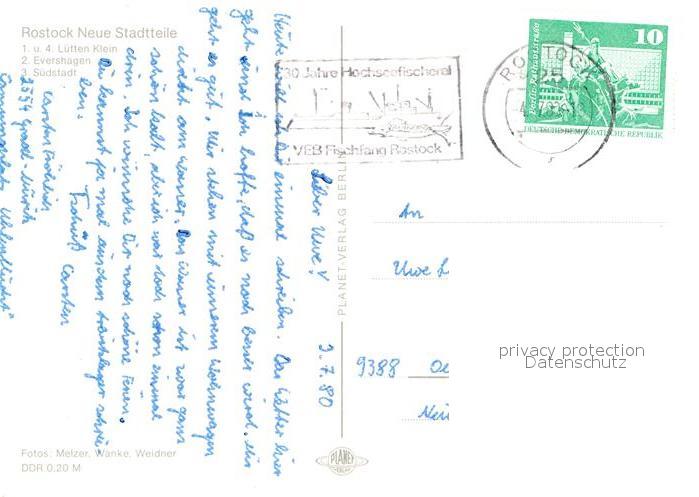 Rostock Neue Stadtteile
1. u. 4. Lütten Klein
2. Evershagen
3. Südstadt
30 Jahre Hochseefischerei
VEB Fischfang Rostock
ROSTOCK
10
DEUTSCHE DEMOKRATISCHE REPUBLIK
3.7.80
Lieber Uwe!
Heute will ich Dir einmal schreiben. Das Wetter hier
geht, und ich hoffe, daß es noch besser wird. Mir
geht es gut. Wir stehen mit unserem Wohnwagen
direkt am Wasser. Das Wasser ist zwar ganz
schön kalt, aber ich war doch schon einmal
drin. Ich wünsche Dir noch schöne Ferien.
Du kannst ja mal aus dem schrei-
ben.
Tschüß Carsten
Carsten
An
Uwe
9388 Oe
PLANET-VERLAG BERLIN
PLANET
VERLAG
Fotos: Melzer, Wanke, Weidner
DDR 0,20 M
privacy protection
Datenschutz